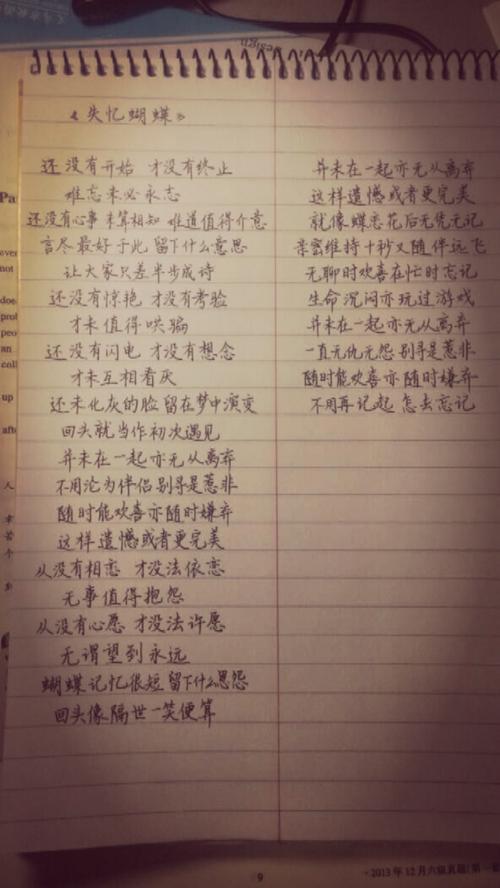 《失忆蝴蝶》
还没有开始 才没有终止
难忘未必永志
还没有心事 未算相知 难道值得介意
言尽最好于此 留下什么意思
让大家只差半步成诗
还没有惊艳 才没有考验
才未值得哄骗
还没有闪电 才没有想念
才未互相看厌
还未化灰的脸 留在梦中演变
回头就当作初次遇见
并未在一起亦无从离弃
不用沦为伴侣别寻是惹非
随时能欢喜亦随时嫌弃
这样遗憾或者更完美
从没有相恋 才没法依恋
无事值得抱怨
从没有心愿 才没法许愿
无谓望到永远
蝴蝶记忆很短 留下什么恩怨
回头像隔世一笑便算
并未在一起亦无从离弃
这样遗憾或者更完美
就像蝶恋花后无凭无记
亲密维持十秒又随伴远飞
无聊时欢喜在忙时忘记
生命沉闷亦玩过游戏
并未在一起亦无从离弃
一直无仇无怨别寻是惹非
随时能欢喜亦随时嫌弃
不用再记起 怎去忘记
esign
Pa
ever
not
doe
prol
peo
an
coll
up
afte
人
个
9
·2013年12月六级真题(第一